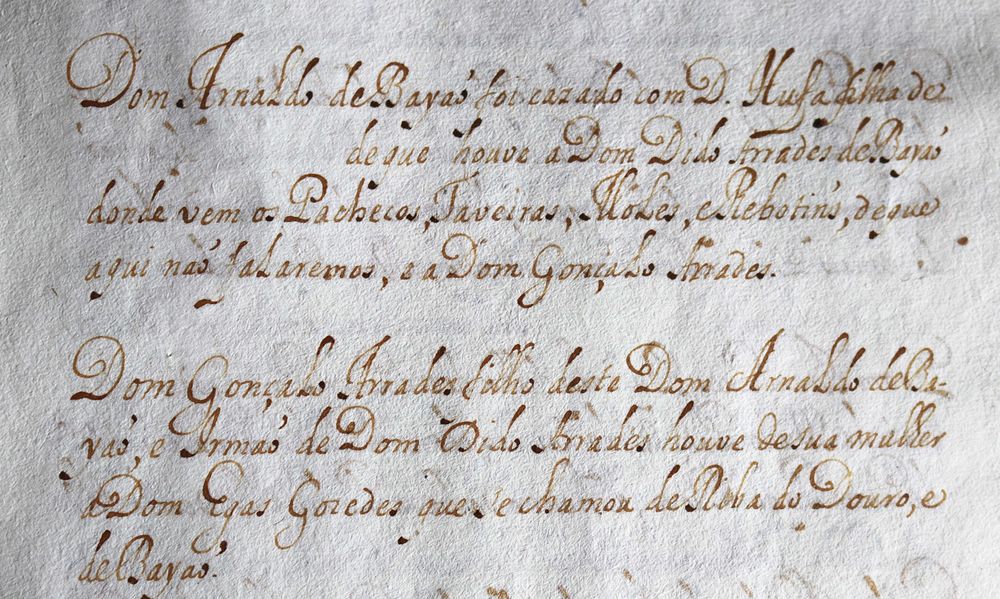 Dom Arnaldo de Bayaõ foi cazado com D. Hufa filha de
de que houve a Dom Dido Arrades de Bayaõ
donde vem os Pachecos, Taveiras, Moles, e Rebotins, de que
aqui naõ falaremos, e a Dom Gonçalo Arrades.
Dom Gonçalo Arrades filho deste Dom Arnaldo de Ba-
yaõ, e Irmaõ de Dom Dido Arrades houve de sua mulher
a Dom Egas Gozedes que se chamou de Riba do Douro, e
de Bayaõ.